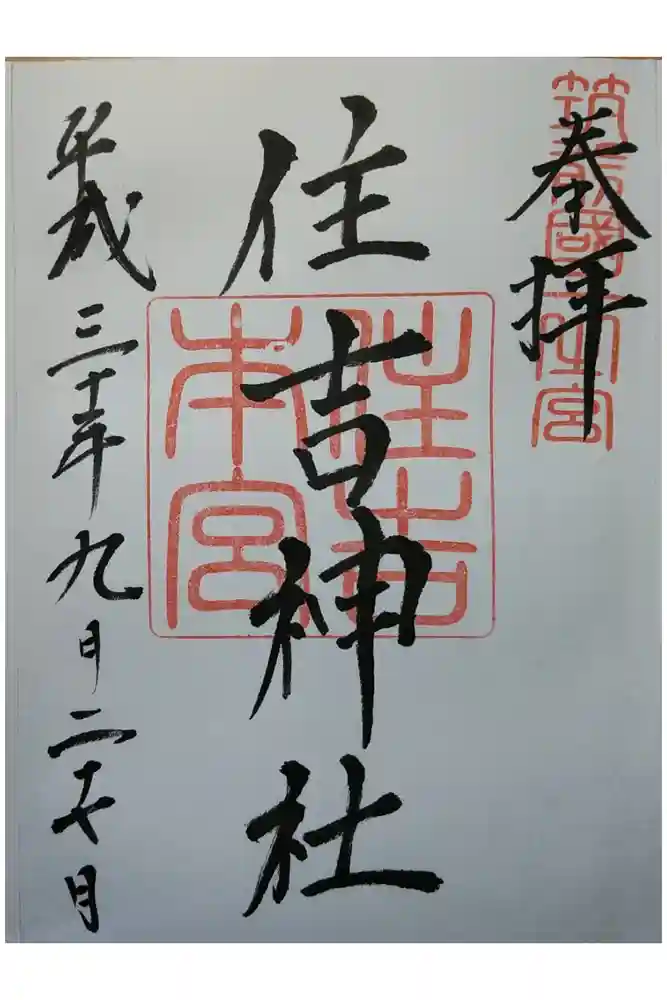 奉拝
筑前國一之宮
住吉神社
住吉
本宮
平成三十年九日二十七月